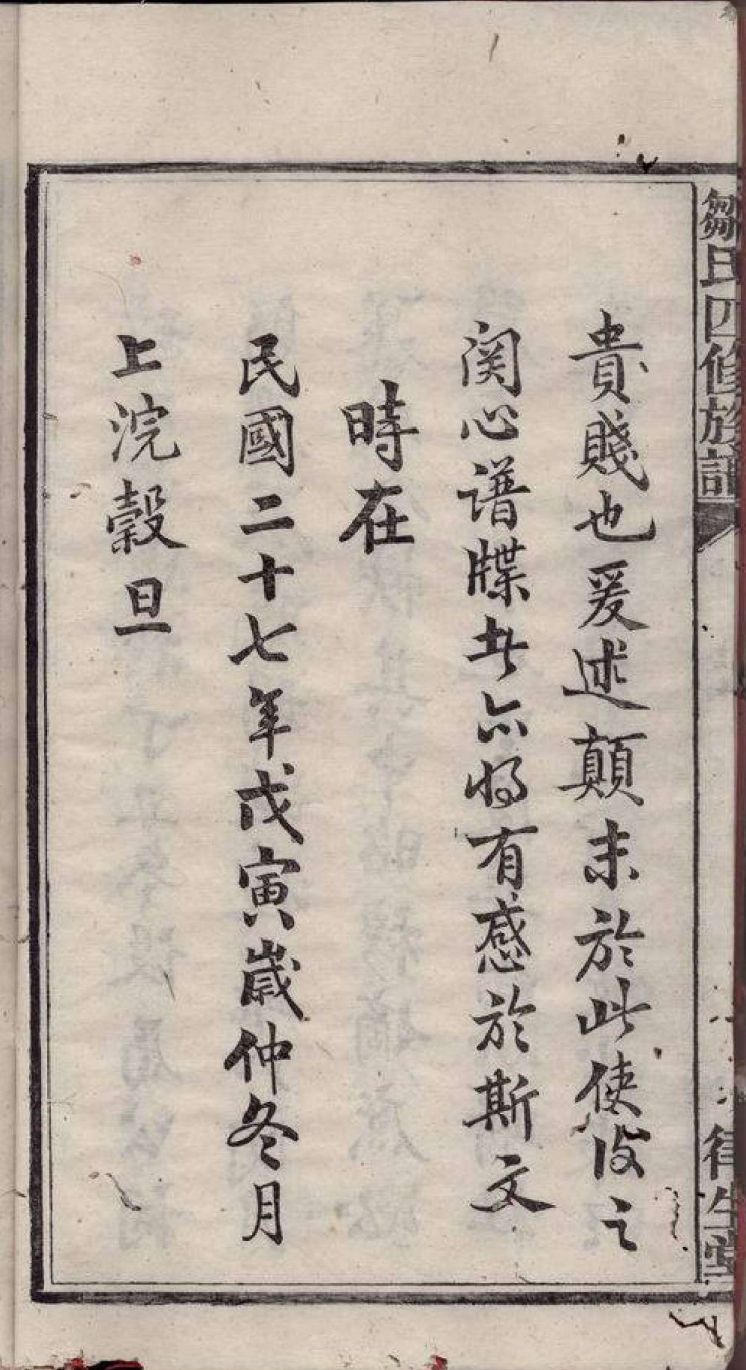 鄒氏四修族譜
貴賤也爰述顛末於此使後之
関心譜牒者亦將有感於斯文
時在
民國二十七年戊寅歲仲冬月
上浣穀旦